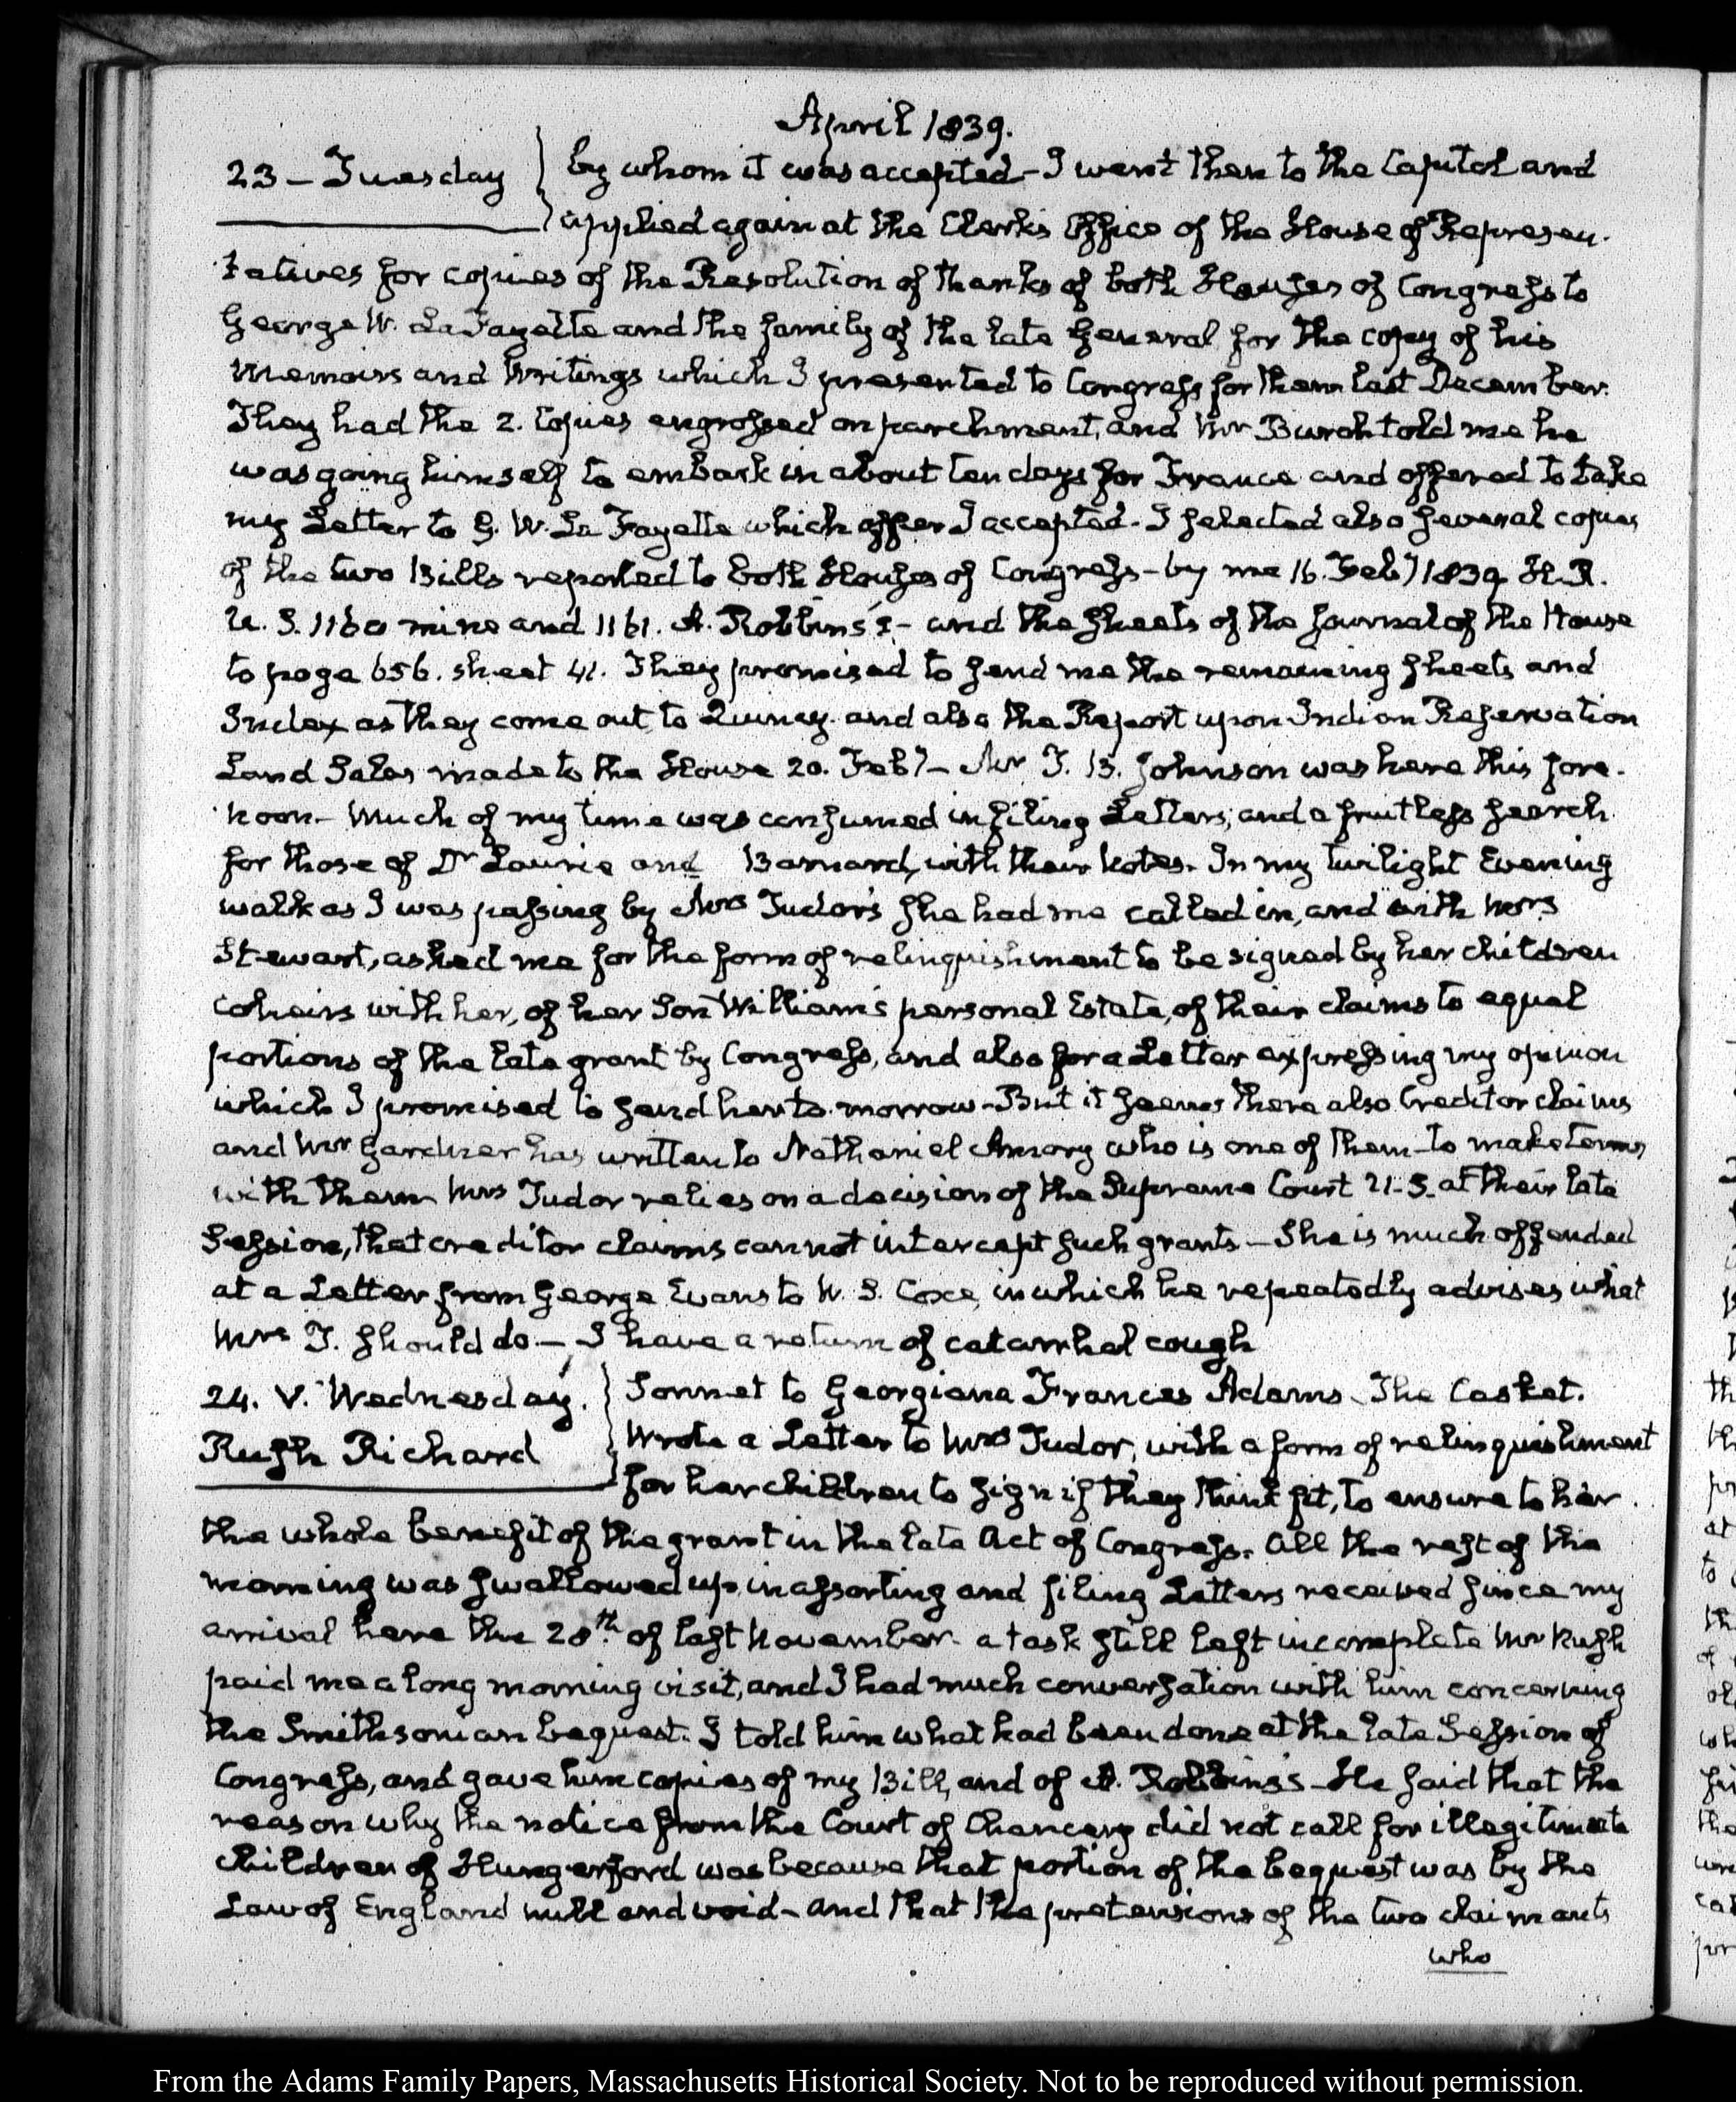 April 1839.
23 – Tuesday } by whom it was accepted – I went then to the Capitol and
applied again at the Clerk's Office of the House of Represen-
tatives for copies of the Resolution of thanks of both Houses of Congress to
George W. LaFayette and the family of the late General for the copy of his
Memoirs and Writings which I presented to Congress for them last December.
They had the 2. Copies engrossed on parchment, and Mr Burch told me he
was going himself to embark in about ten days for France and offered to take
my Letter to G. W. La Fayette which offer I accepted – I selected also several copies
of the two Bills reported to both Houses of Congress – by me 16. Feby 1839 H. R.
U. S. 1160 mine and 1161. A. Robbins's – and the sheets of the Journal of the House
to page 656. sheet 41. They promised to send me the remaining sheets and
Index as they come out to Quincy and also the Report upon Indian Reservation
Land Sales made to the House 20. Feby – Mr T. B. Johnson was here this fore-
noon – Much of my time was consumed in filing Letters; and a fruitless search
for those of Dr Laurie and Barnard, with their Notes. In my twilight Evening
walk as I was passing by Mrs Tudor's she had me called in, and with Mrs
Stewart, asked me for the form of relinquishment to be signed by her children
coheirs with her, of her Son William's personal Estate, of their claims to equal
portions of the late grant by Congress, and also for a Letter expressing my opinion
which I promised to send her to-morrow – But it seems there also Creditor claims
and Mr Gardner has written to Nathaniel Amory who is one of them to make terms
with them Mrs Tudor relies on a decision of the Supreme Court U. S. at their late
Session, that creditor claims cannot intercept such grants – She is much offended
at a Letter from George Evans to W. S. Coxe, in which he repeatedly advises what
Mrs T. should do – I have a return of catarrhal cough
24. V. Wednesday. } Sonnet to Georgiana Frances Adams – The Casket.
Rush Richard } Wrote a Letter to Mrs Tudor, with a form of relinquishment
for her children to sign if they think fit, to ensure to her
the whole benefit of the grant in the late Act of Congress. All the rest of the
morning was swallowed up in assorting and filing Letters received since my
arrival here the 28th. of last November – a task still left incomplete Mr Rush
paid me a long morning visit, and I had much conversation with him concerning
the Smithsonian bequest. I told him what had been done at the late Session of
Congress, and gave him copies of my Bill, and of A. Robbins's – He said that the
reason why the notice from the Court of Chancery did not call for illegitimate
children of Hungerford was because that portion of the bequest was by the
Law of England null and void – and that the pretensions of the two claimants
who
From the Adams Family Papers, Massachusetts Historical Society. Not to be reproduced without permission.